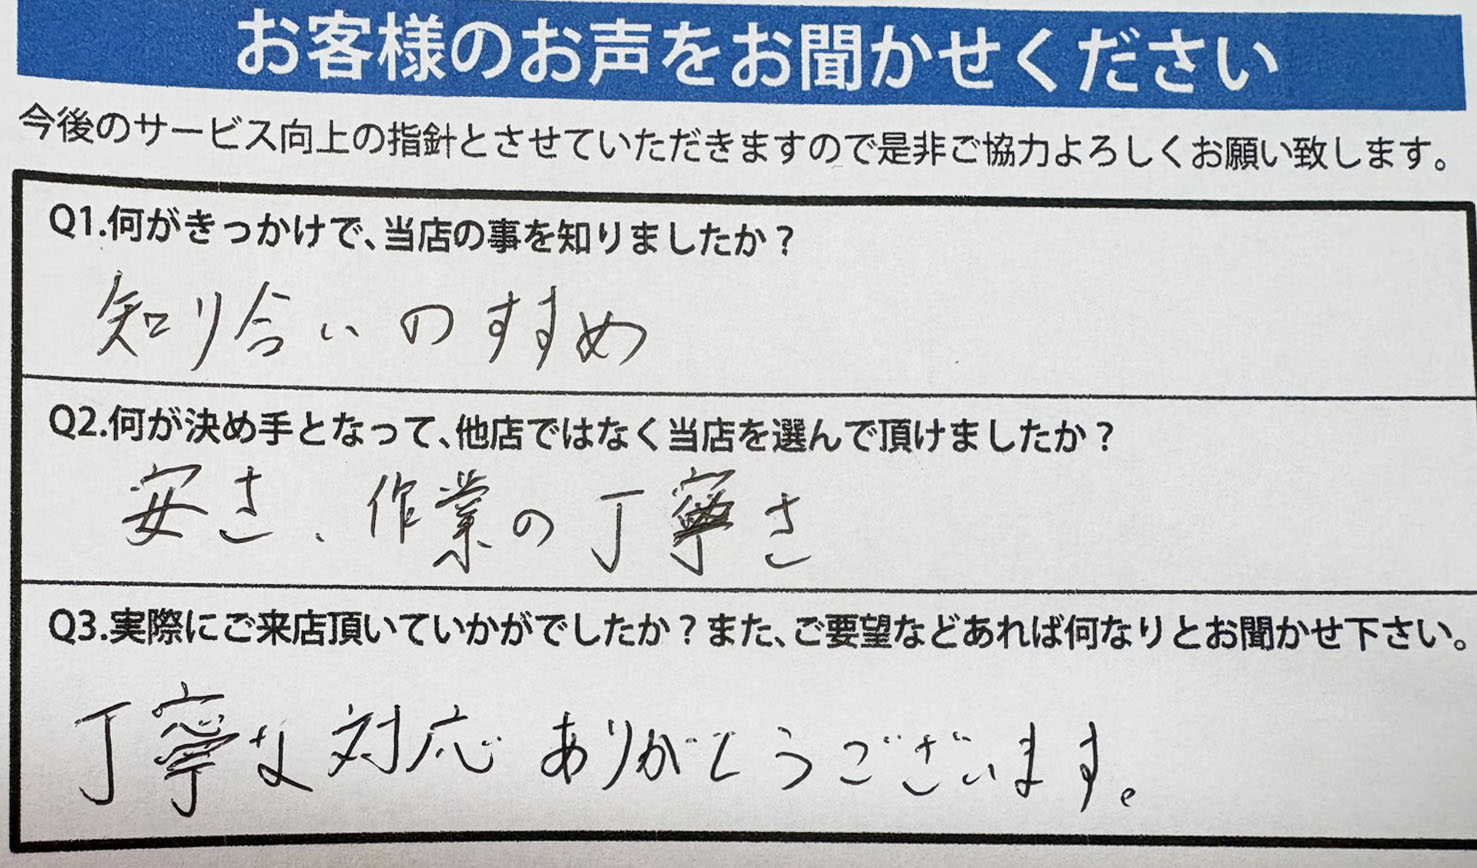 お客様のお声をお聞かせください
今後のサービス向上の指針とさせていただきますので是非ご協力よろしくお願い致します。
Q1.何がきっかけで、当店の事を知りましたか？
知り合いのすすめ
Q2.何が決め手となって、他店ではなく当店を選んで頂けましたか？
安さ、作業の丁寧さ
Q3.実際にご来店頂いていかがでしたか？また、ご要望などあれば何なりとお聞かせ下さい。
丁寧な対応ありがとうございます。